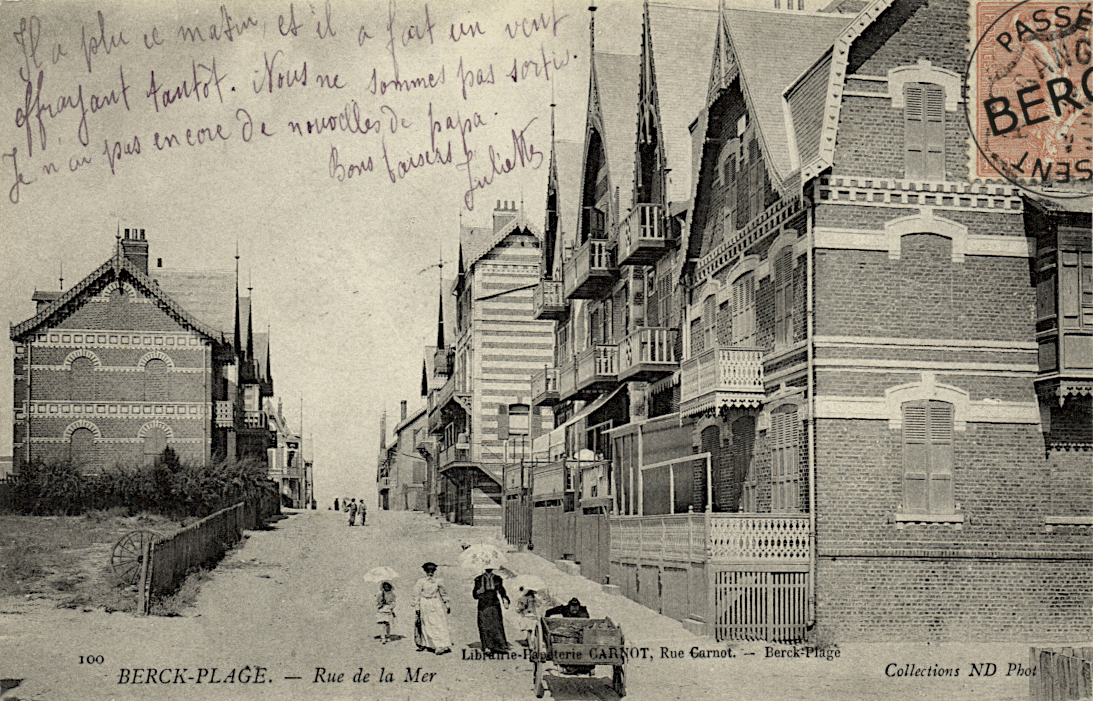 Il a plu ce matin, et il a fait un vent
effrayant tantôt. Nous ne sommes pas sortis.
Je n'ai pas encore de nouvelles de papa.
Bons baisers
Juliette
PASSÉ
BERC
100
BERCK-PLAGE. — Rue de la Mer
Librairie-Papeterie CARNOT, Rue Carnot. — Berck-Plage
Collections ND Phot